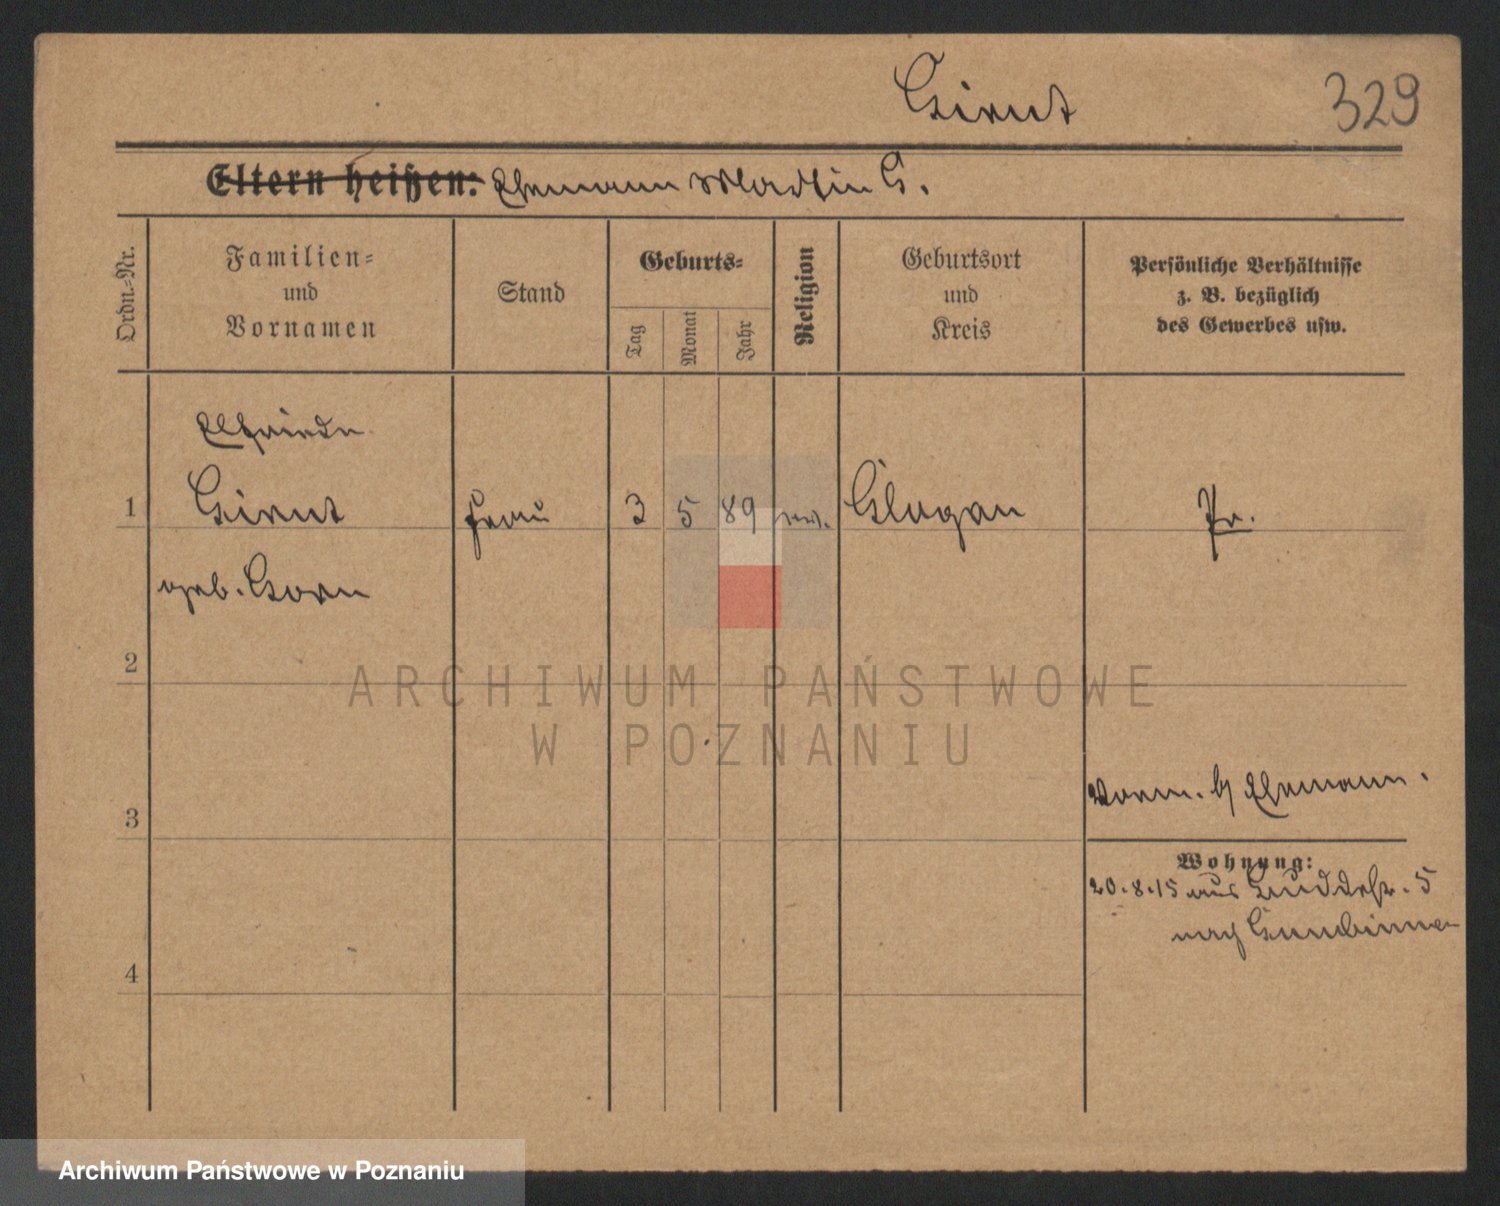 Girnt
329
Eltern heißen: Ehemann Wladsin G.
Ordn.-Nr.
Familien-
und
Vornamen
Stand
Geburts-
Tag
Monat
Jahr
Religion
Geburtsort
und
Kreis
Persönliche Verhältnisse
z. B. bezüglich
des Gewerbes usw.
Elfriede
1 Girnt Frau 3 5 89 ev. Glogau Pr.
geb. Gorn
2
ARCHIWUM PAŃSTWOWE
W POZNANIU
Verm. b/ Ehemann.
3
Wohnung:
20.8.15 aus 5
nach Gumbinnen
4
Archiwum Państwowe w Poznaniu